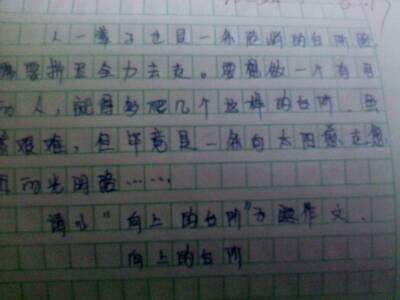 人一辈子也是一条陡峭的台阶路
需要拼尽全力去走。要想做一个有用
的人，就得多爬几个这样的台阶。虽
然艰难，但毕竟是一条向太阳愈走愈
的光明路……
请以“向上的台阶”为题作文.
向上的台阶